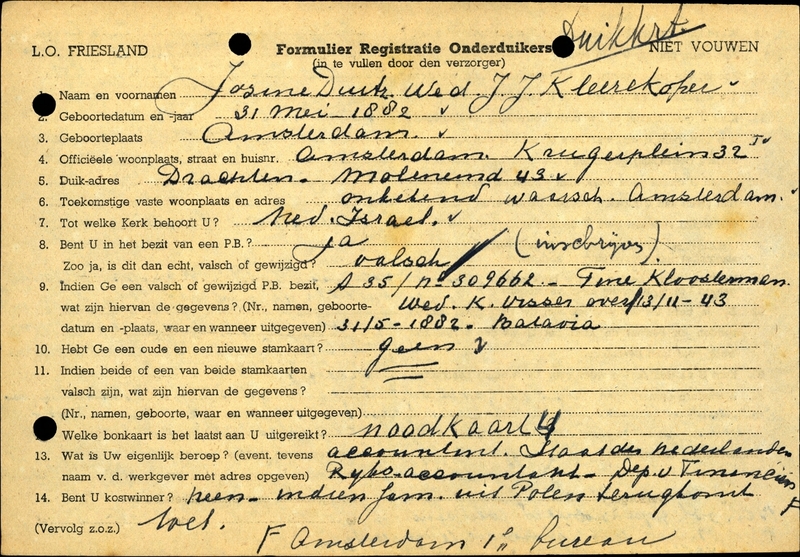 Duikkrt.
L.O. FRIESLAND Formulier Registratie Onderduikers NIET VOUWEN
(in te vullen door den verzorger)
1. Naam en voornamen Josine Duitz Wed. J J. Kleerekoper
2. Geboortedatum en -jaar 31 Mei 1882
3. Geboorteplaats Amsterdam.
4. Officiëele woonplaats, straat en huisnr. Amsterdam. Krugerplein 32
5. Duik-adres Drachten - Moleneind 43
6. Toekomstige vaste woonplaats en adres onbekend waarsch. Amsterdam.
7. Tot welke Kerk behoort U? Ned. Israel.
8. Bent U in het bezit van een P.B.? ja (inschrijven)
Zoo ja, is dit dan echt, valsch of gewijzigd? valsch
9. Indien Ge een valsch of gewijzigd P.B. bezit, A 35 / no 309662 - Tine Kloosterman.
wat zijn hiervan de gegevens? (Nr., namen, geboorte- Wed. K. Visser 13/11-43
datum en -plaats, waar en wanneer uitgegeven) 31/5-1882- Batavia
10. Hebt Ge een oude en een nieuwe stamkaart? geen
11. Indien beide of een van beide stamkaarten
valsch zijn, wat zijn hiervan de gegevens?
(Nr., namen, geboorte, waar en wanneer uitgegeven)
Welke bonkaart is het laatst aan U uitgereikt? noodkaart
13. Wat is Uw eigenlijk beroep? (event. tevens accountint. Staat der Nederlanden
naam v. d. werkgever met adres opgeven) Ryks-accountant - Dep. v Financiën
14. Bent U koswinner? neen - indien fam. uit Polen terugkomt
(Vervolg z.o.z.) wel.
F Amsterdam 1e bureau